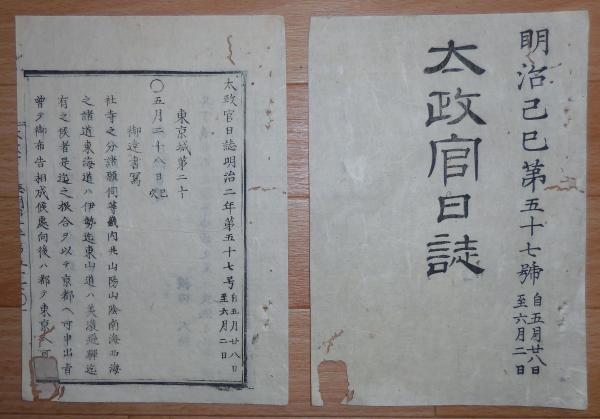 明治己巳第五十七號
自五月廿八日
至六月二日
太政官日誌
太政官日誌明治二年第五十七号
自五月廿八日
至六月二日
東京城第二十
〇五月二十八日
御達書寫
社寺之分諸願伺等畿内共山陽山陰南海西海
之諸道東海道ハ伊勢迄東山道ハ美濃飛驒迄
有之候者是迄之振合ヲ以テ京都ヘ可申出旨
曽テ御布告相成候處向後ハ都テ東京ヘ可